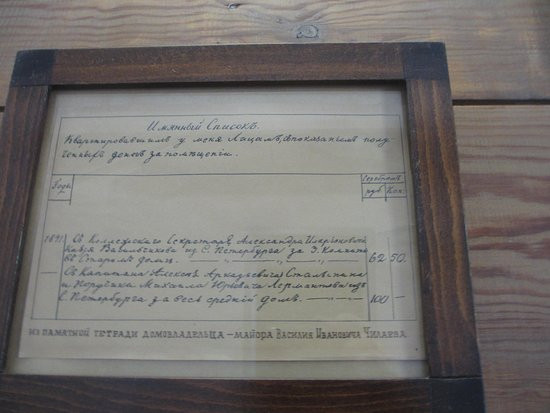 Имянный Списокъ.
Квартировавшимъ у меня Лицамъ, съ показаніемъ полу-
ченныхъ денегъ за помѣщеніи.
Годы
Серебромъ
руб. Коп
1841 Съ Коллежскаго Секретаря Александра Илларіоновича
Князя Васильчикова изъ С. Петербурга за 3. Комнаты
въ Старомъ домѣ. 62 50.
Съ Капитана Алексѣя Аркадьевича Столыпина
и Поручика Михаила Юрьевича Лермантова изъ
С. Петербурга за весь средній домъ 100 —
ИЗ ПАМЯТНОЙ ТЕТРАДИ ДОМОВЛАДЕЛЬЦА — МАЙОРА ВАСИЛИЯ ИВАНОВИЧА ЧИЛАЕВА